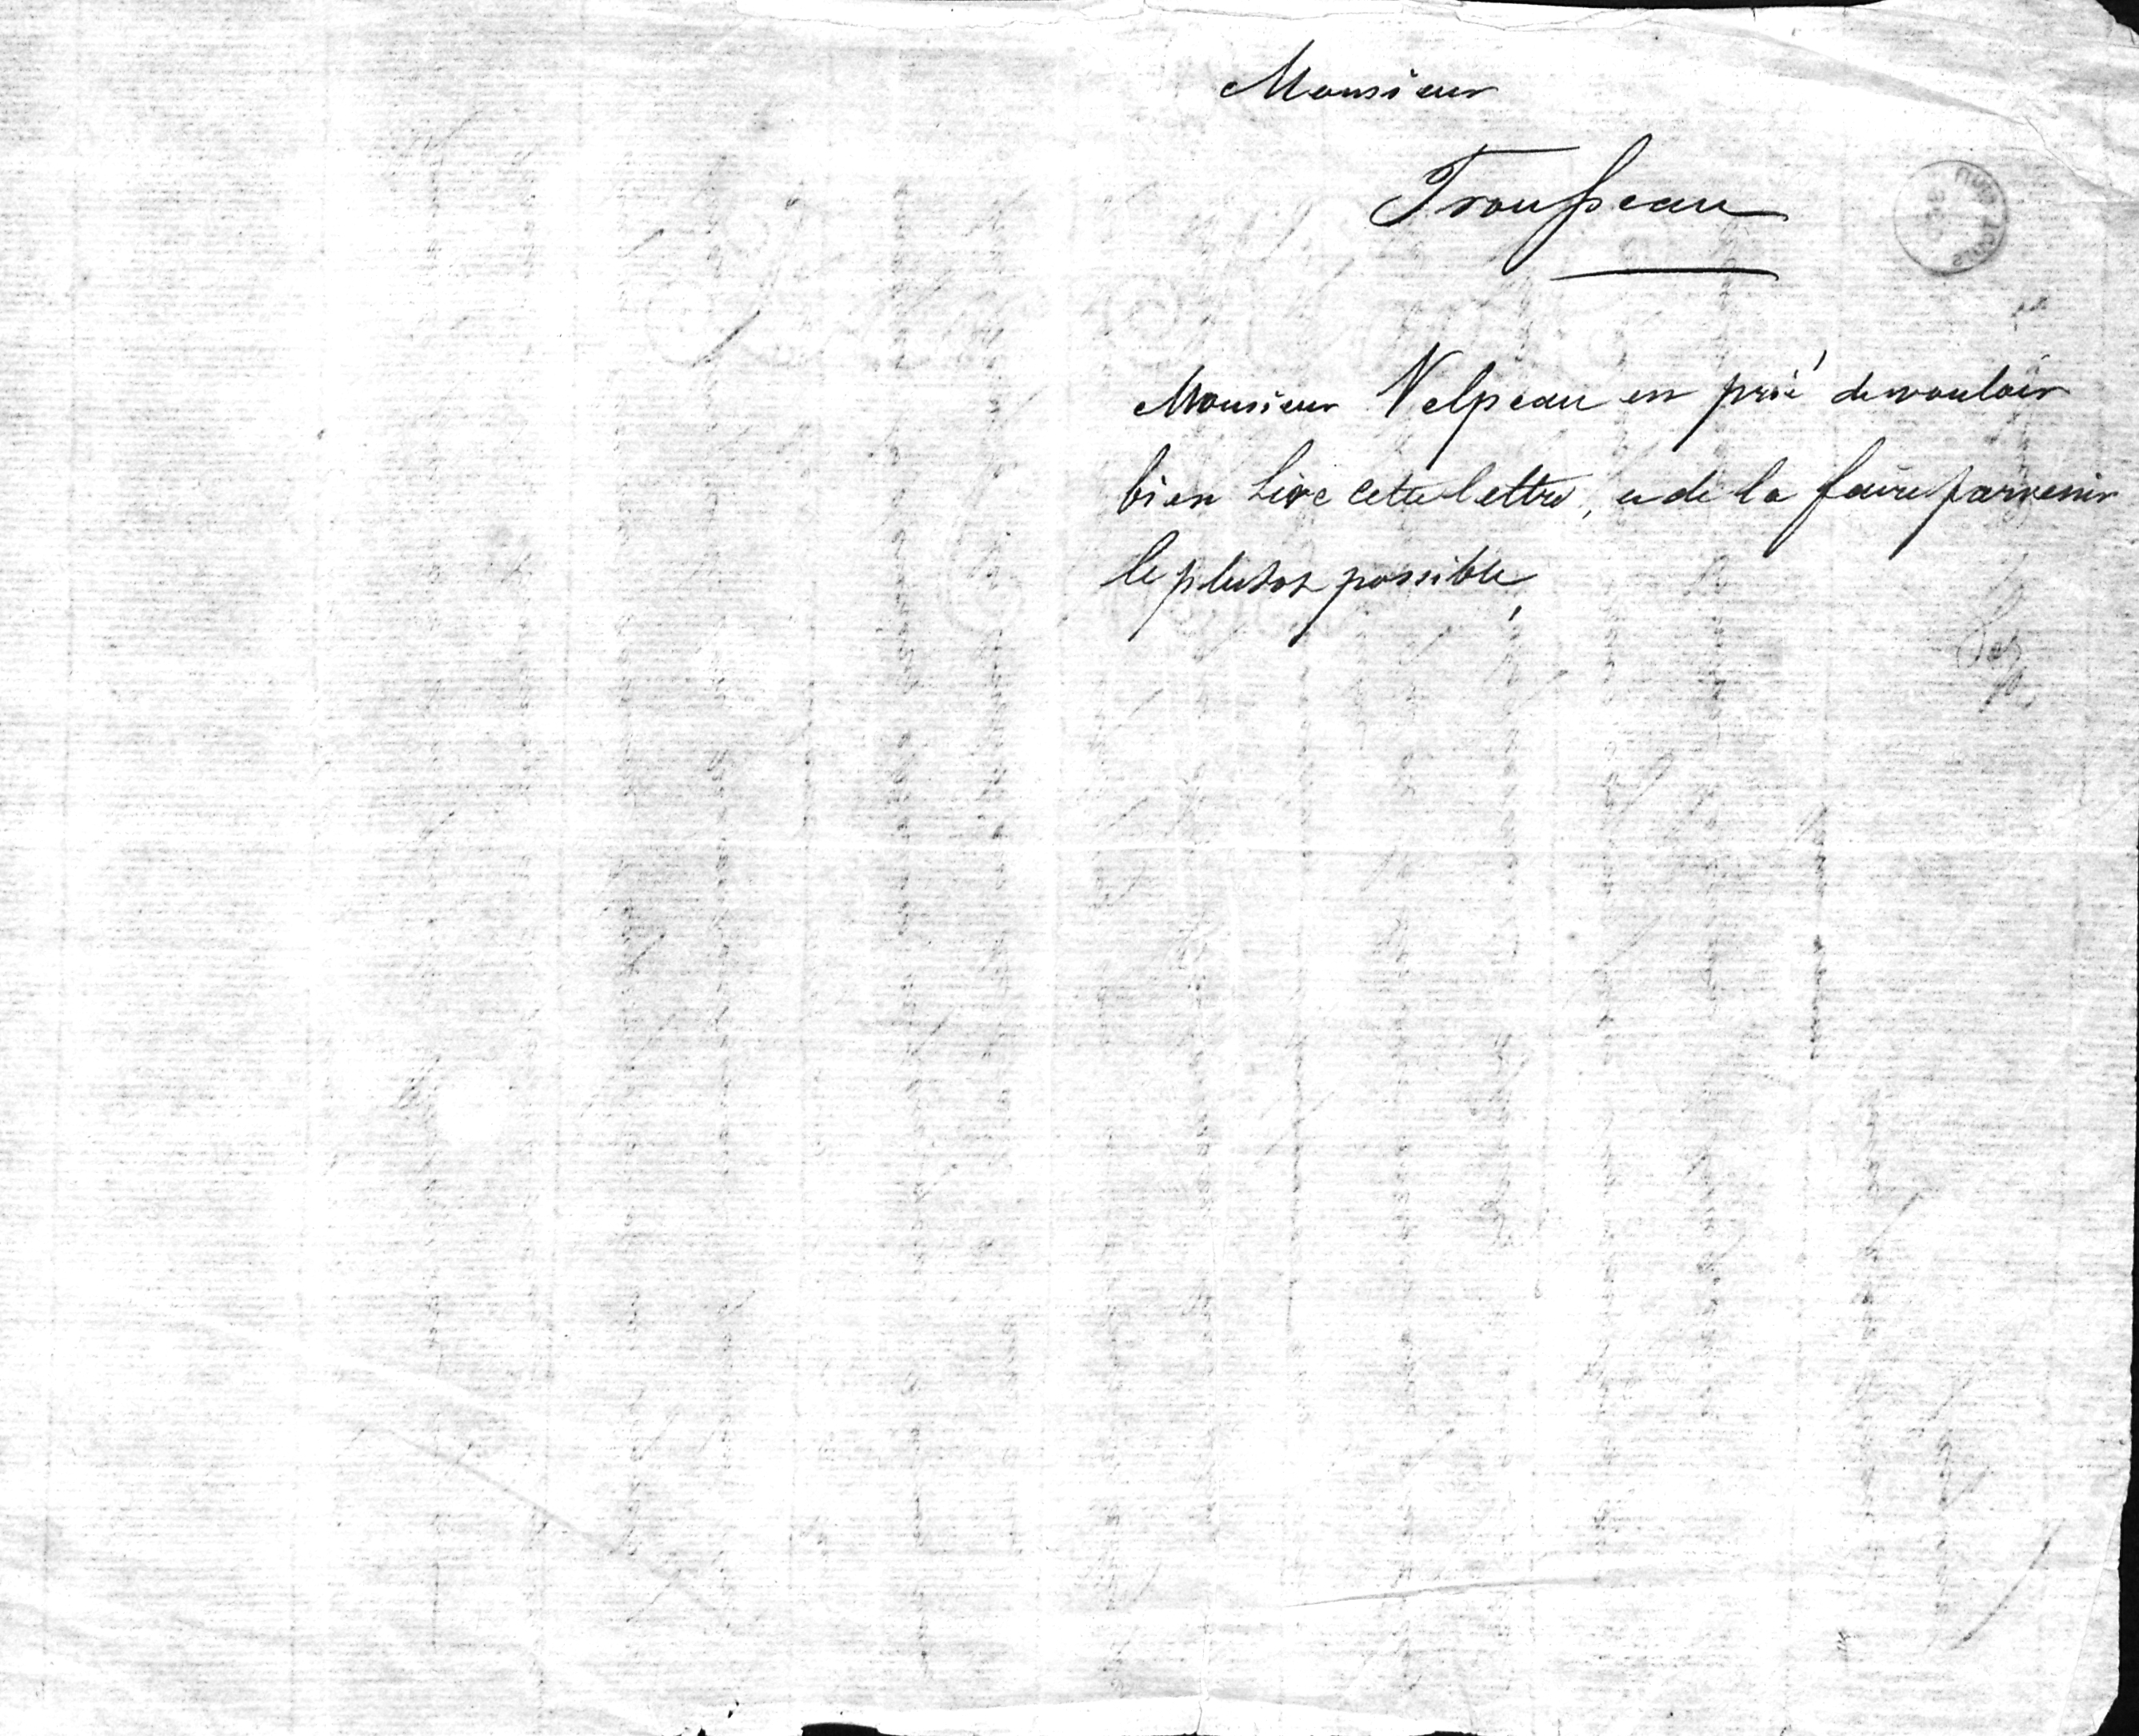 Monsieur
Trousseau
Monsieur Velpeau est prié de vouloir
bien Lire cette lettre, et de la faire parvenir
le plutot possible,